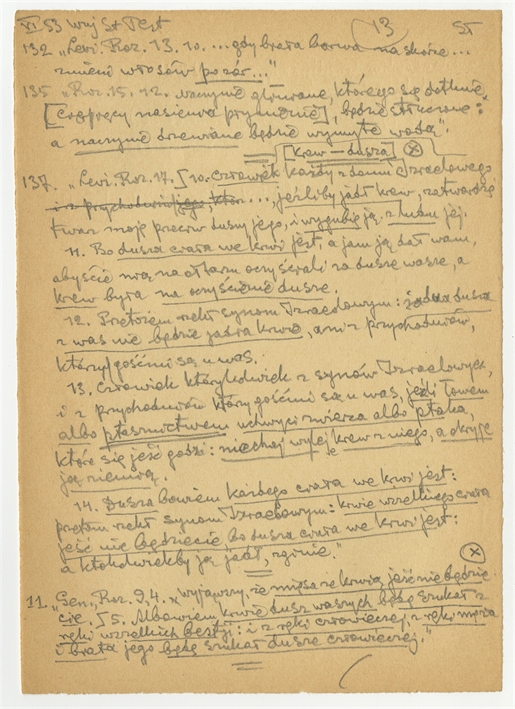 VI 53 Wuj St Test 13 ST
132 „Levi. Roz. 13. 10. ... gdyby barwa na skórze ...
zmieni włosów pozór..."
135 „Roz. 15. 12. naczynie gliniane, którego się dotknie
[cierpiący nasienia płynienie], będzie stłuczone:
a naczynie drzewiane będzie wymyte wodą".
[Krew – dusza] X
137. „Levi. Roz. 17. [10. Człowiek każdy z domu Izraelowego
i z przychodniów jego któr..., jeśliby jadł krew, zatwardzę
twarz moję przeciw duszy jego, i wygubię ją z ludu jej.
11. Bo dusza ciała we krwi jest, a jam ją dał wam,
abyście nią na ołtarzu oczyściali za dusze wasze, a
krew była na oczyścienie dusze.
12. Przetożem rzekł synom Izraelowym: żadna dusza
z was nie będzie jadła krwie, ani z przychodniów,
którzy gośćmi są u was.
13. Człowiek którykolwiek z synów Izraelowych,
i z przychodniów którzy gośćmi są u was, jeśli łowem
albo ptasznictwem uchwyci zwierza albo ptaka,
które się jeść godzi: niechaj wyleje krew z niego, a okryje
ją ziemią.
14. Dusza bowiem każdego ciała we krwi jest:
przetom rzekł synom Izraelowym: krwie wszelkiego ciała
jeść nie będziecie bo dusza ciała we krwi jest:
a ktobykolwiek ją jadł, zginie."
X
11. „Gen. Roz. 9, 4. „wyjąwszy, że mięsa ze krwią jeść nie będzie-
cie. [5. Albowiem krwie dusz waszych będę szukał z
ręki wszelkich bestyj: i z ręki człowieczej, z ręki męża
i brata jego będę szukał dusze człowieczej."